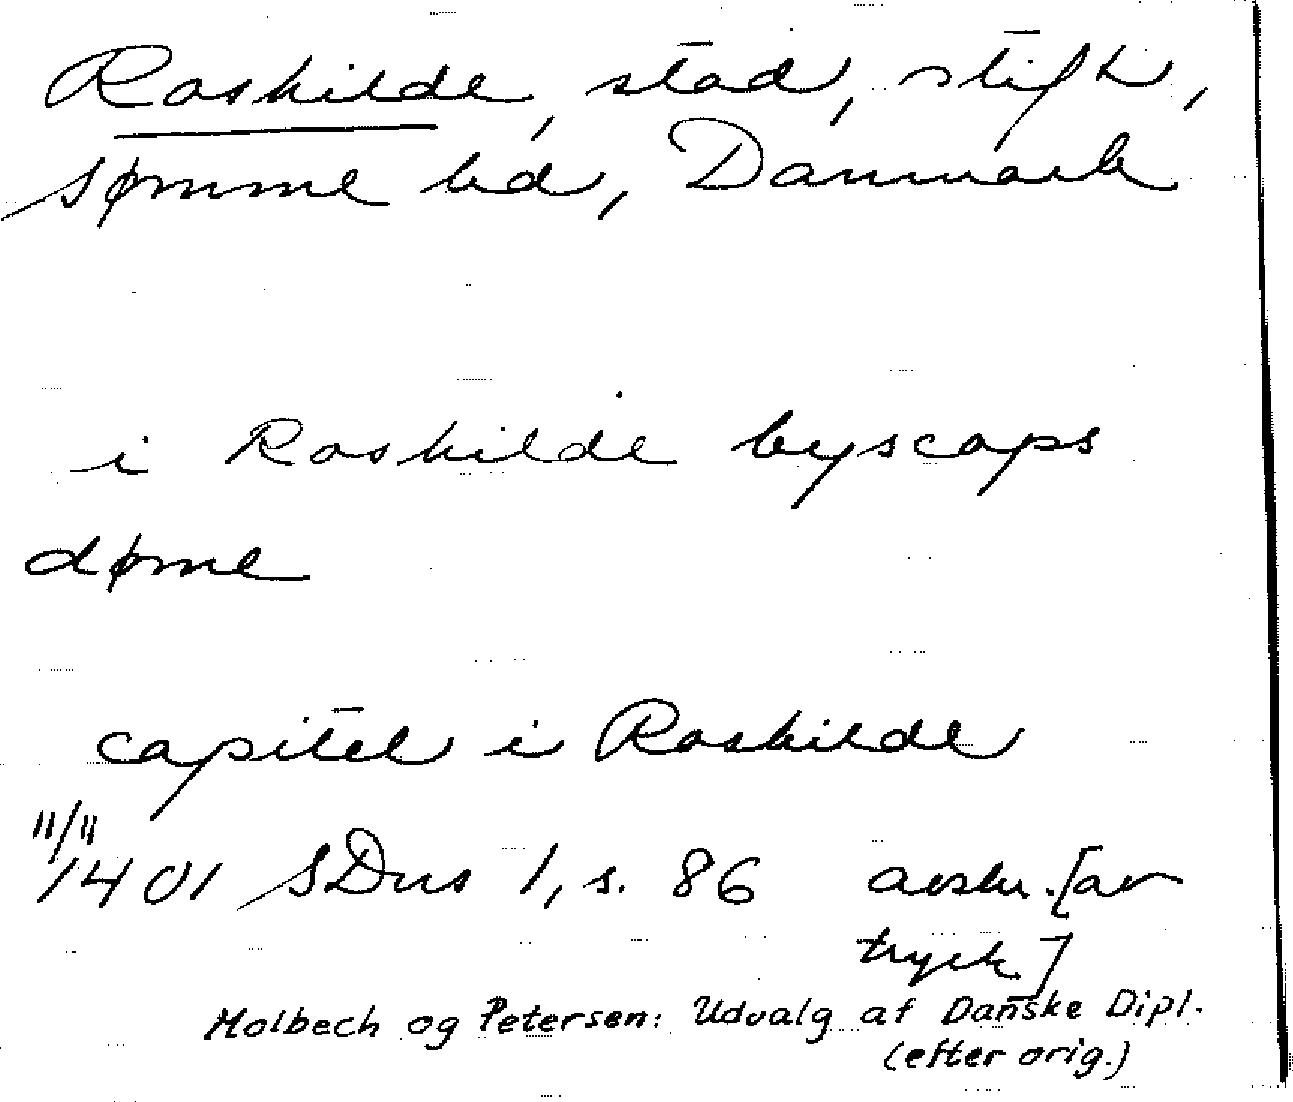 Roskilde, stad, stift,
Sømme hd, Danmark
i Roskilde byscops
døme
capitel i Roskilde
11/11
1401 SDns 1, s. 86 avskr. [av
tryck]
Molbech og Petersen: Udvalg af Danske Dipl.
(efter orig.)